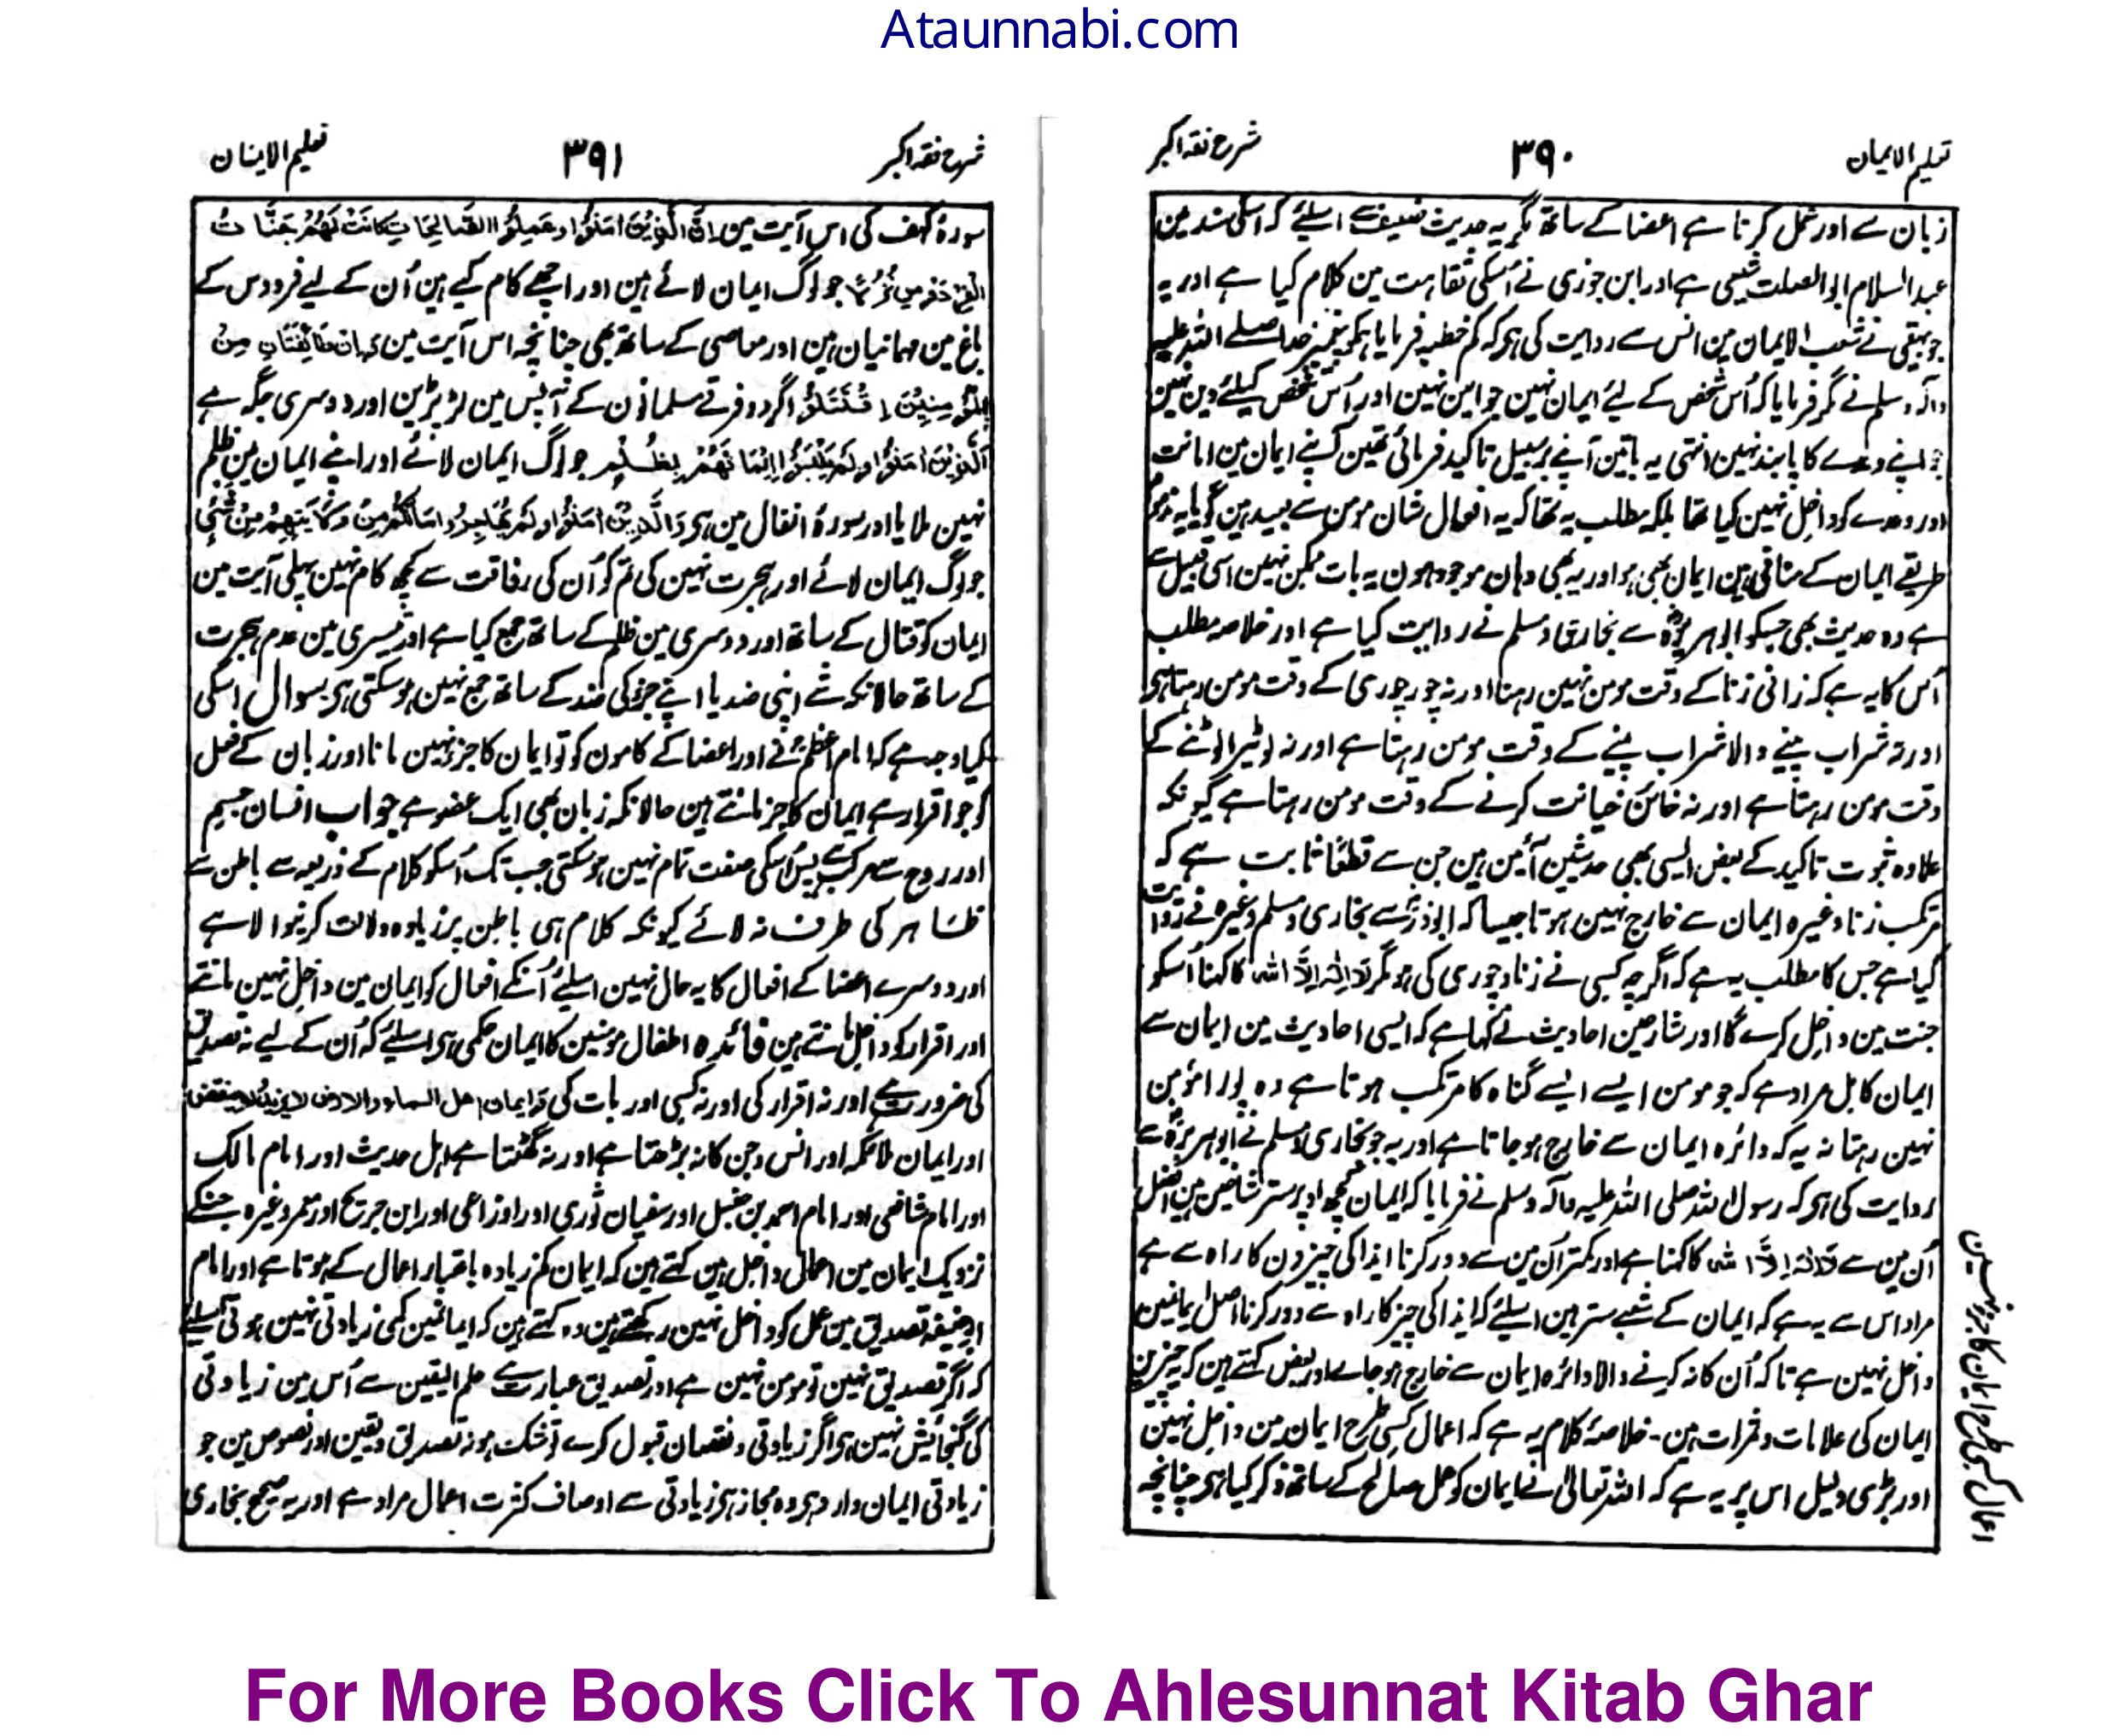 Ataunnabi.com
تعلیم الایمان ۳۹۰ شرح فقہ اکبر
زبان سے اور عمل کرنا ہے اعضا کے ساتھ مگر یہ حدیث ضعیف ہے اسلئے کہ اسکی سند مین
عبد السلام ابو الصلت شیعی ہے اور ابن جوزی نے اُسکی ثقاہت مین کلام کیا ہے اور یہ
جو بیہقی نے شعب الایمان مین انس سے روایت کی ہے کہ کم خطبہ فرمایا ہمکو پیغمبر خدا صلے اللہ علیہ
وآلہ وسلم نے مگر فرمایا کہ اُس شخص کے لیئے ایمان نہین جو امین نہین اور اُس شخص کیلئے دین نہین
جو اپنے وعدے کا پابند نہین انتہی یہ باتین آپنے بر سبیل تاکید فرمائی تھین کہ اپنے ایمان مین امانت
اور وعدے کو داخل نہین کیا تھا بلکہ مطلب یہ تھا کہ یہ افعال شان مومن سے بعید ہین گویا یہ
طریقے ایمان کے منافی ہین ایمان بھی ہو اور یہ بھی وہان موجود ہون یہ بات ممکن نہین اسی قبیل سے
ہے وہ حدیث بھی جسکو ابو ہریرہؓ سے بخاری و مسلم نے روایت کیا ہے اور خلاصہ مطلب
اُس کا یہ ہے کہ زانی زنا کے وقت مومن نہین رہتا اور نہ چور چوری کے وقت مومن رہتا ہے
اور نہ شراب پینے والا شراب پینے کے وقت مومن رہتا ہے اور نہ لوٹیرا لوٹنے کے
وقت مومن رہتا ہے اور نہ خائن خیانت کرنے کے وقت مومن رہتا ہے کیونکہ
علاوہ ثبوت تاکید کے بعض ایسی بھی حدیثین آئین ہین جن سے قطعًا ثابت ہے کہ
مرتکب زنا وغیرہ ایمان سے خارج نہین ہوتا جیسا کہ ابوذرؓ سے بخاری و مسلم وغیرہ نے روایت
کیا ہے جس کا مطلب یہ ہے کہ اگرچہ کسی نے زنا و چوری کی ہو مگر لَا اِلٰہَ اِلَّا اللہ کا کہنا اُسکو
جنت مین داخل کرے گا اور شارحین احادیث نے کہا ہے کہ ایسی احادیث مین ایمان سے
ایمان کامل مراد ہے کہ جو مومن ایسے ایسے گناہ کا مرتکب ہوتا ہے وہ پورا مومن
نہین رہتا نہ یہ کہ دائرہ ایمان سے خارج ہو جاتا ہے اور یہ جو بخاری و مسلم نے ابوہریرہؓ سے
روایت کی ہے کہ رسول اللہ صلی اللہ علیہ وآلہ وسلم نے فرمایا کہ ایمان کچھ اوپر ستر شاخین ہین افضل
اُن مین سے لَا اِلٰہَ اِلَّا اللہ کا کہنا ہے اور کمتر اُن مین سے دور کرنا ایذا کی چیزون کا راہ سے ہے
مراد اس سے یہ ہے کہ ایمان کے شعبے ستر ہین اسلیئے کہ ایذا کی چیز کا راہ سے دور کرنا اصل ایمانمین
داخل نہین ہے تاکہ اُن کا نہ کرنے والا دائرہ ایمان سے خارج ہو جاے اور بعض کہتے ہین کہ یہ چیزین
ایمان کی علامات و ثمرات ہین - خلاصۂ کلام یہ ہے کہ اعمال کسی طرح ایمان مین داخل نہین
اور بڑی دلیل اس پر یہ ہے کہ اللہ تعالیٰ نے ایمان کو عمل صالح کے ساتھ ذکر کیا ہے چنانچہ
اعمال کسی طرح ایمان کا جز نہین
شرح فقہ اکبر ۳۹۱ تعلیم الایمان
سورۂ کہف کی اس آیت مین اِنَّ الَّذِیْنَ اٰمَنُوْا وَعَمِلُوا الصَّالِحَاتِ کَانَتْ لَهُمْ جَنَّاتُ
الْفِرْدَوْسِ نُزُلًا جو لوگ ایمان لائے ہین اور اچھے کام کیے ہین اُن کے لیے فردوس کے
باغ مین مہمانیان ہین اور معاصی کے ساتھ بھی چنانچہ اس آیت مین وان طَائِفَتَانِ مِنَ
الْمُؤْمِنِیْنَ اقْتَتَلُوْا اگر دو فرقے مسلمانون کے آپس مین لڑ پڑین اور دوسری جگہ ہے
اَلَّذِیْنَ اٰمَنُوْا وَلَمْ یَلْبِسُوْا اِیْمَانَهُمْ بِظُلْمٍ جو لوگ ایمان لائے اور اپنے ایمان مین ظلم
نہین ملایا اور سورۂ انفال مین ہے وَالَّذِیْنَ اٰمَنُوْا وَلَمْ یُهَاجِرُوْا مَا لَکُمْ مِنْ وَلَایَتِهِمْ مِنْ شَیْءٍ
جو لوگ ایمان لائے اور ہجرت نہین کی تم کو اُن کی رفاقت سے کچھ کام نہین پہلی آیت مین
ایمان کو قتال کے ساتھ اور دوسری مین ظلم کے ساتھ جمع کیا ہے اور تیسری مین عدم ہجرت
کے ساتھ حالانکہ شے اپنی ضد یا اپنے جز کی ضد کے ساتھ جمع نہین ہو سکتی ہے سوال اسکی
کیا وجہ ہے کہ امام اعظمؒ نے اور اعضا کے کامون کو تو ایمان کا جز نہین مانا اور زبان کے فعل
کو جو اقرار ہے ایمان کا جز مانتے ہین حالانکہ زبان بھی ایک عضو ہے جواب انسان جسم
اور روح سے مرکب ہے پس اُسکی صفت تمام نہین ہو سکتی جب تک اُسکو کلام کے ذریعہ سے باطن سے
ظاہر کی طرف نہ لائے کیونکہ کلام ہی باطن پر زیادہ دلالت کرنیوالا ہے
اور دوسرے اعضا کے افعال کا یہ حال نہین اسلیئے اُنکے افعال کو ایمان مین داخل نہین مانتے
اور اقرار کو داخل مانتے ہین فائدہ اطفال مومنین کا ایمان حکمی ہے اسلیئے کہ اُن کے لیے نہ تصدیق
کی ضرورت ہے اور نہ اقرار کی اور نہ کسی اور بات کی وَ ایمان اهل السماء والارض لا یزید ولا ینقص
اور ایمان ملائکہ اور انس و جن کا نہ بڑھتا ہے اور نہ گھٹتا ہے اہل حدیث اور امام مالک
اور امام شافعی اور امام احمد بن حنبل اور سفیان ثوری اور اوزاعی اور ابن جریج اور معمر وغیرہ جنکے
نزدیک ایمان مین اعمال داخل ہین کہتے ہین کہ ایمان کم زیادہ باعتبار اعمال کے ہوتا ہے اور امام
ابو حنیفہ تصدیق مین عمل کو داخل نہین رکھتے ہین وہ کہتے ہین کہ ایمانمین کمی زیادتی نہین ہوتی اسلیئے
کہ اگر تصدیق نہین تو مومن نہین ہے اور تصدیق عبارت ہے علم الیقین سے اُس مین زیادتی
کی گنجائش نہین ہے اگر زیادتی و نقصان قبول کرے تو شک ہو نہ تصدیق و یقین اور نصوص مین جو
زیادتی ایمان وارد ہے وہ مجاز ہے زیادتی سے اوصاف کثرت اعمال مراد ہے اور یہ صحیح بخاری
For More Books Click To Ahlesunnat Kitab Ghar